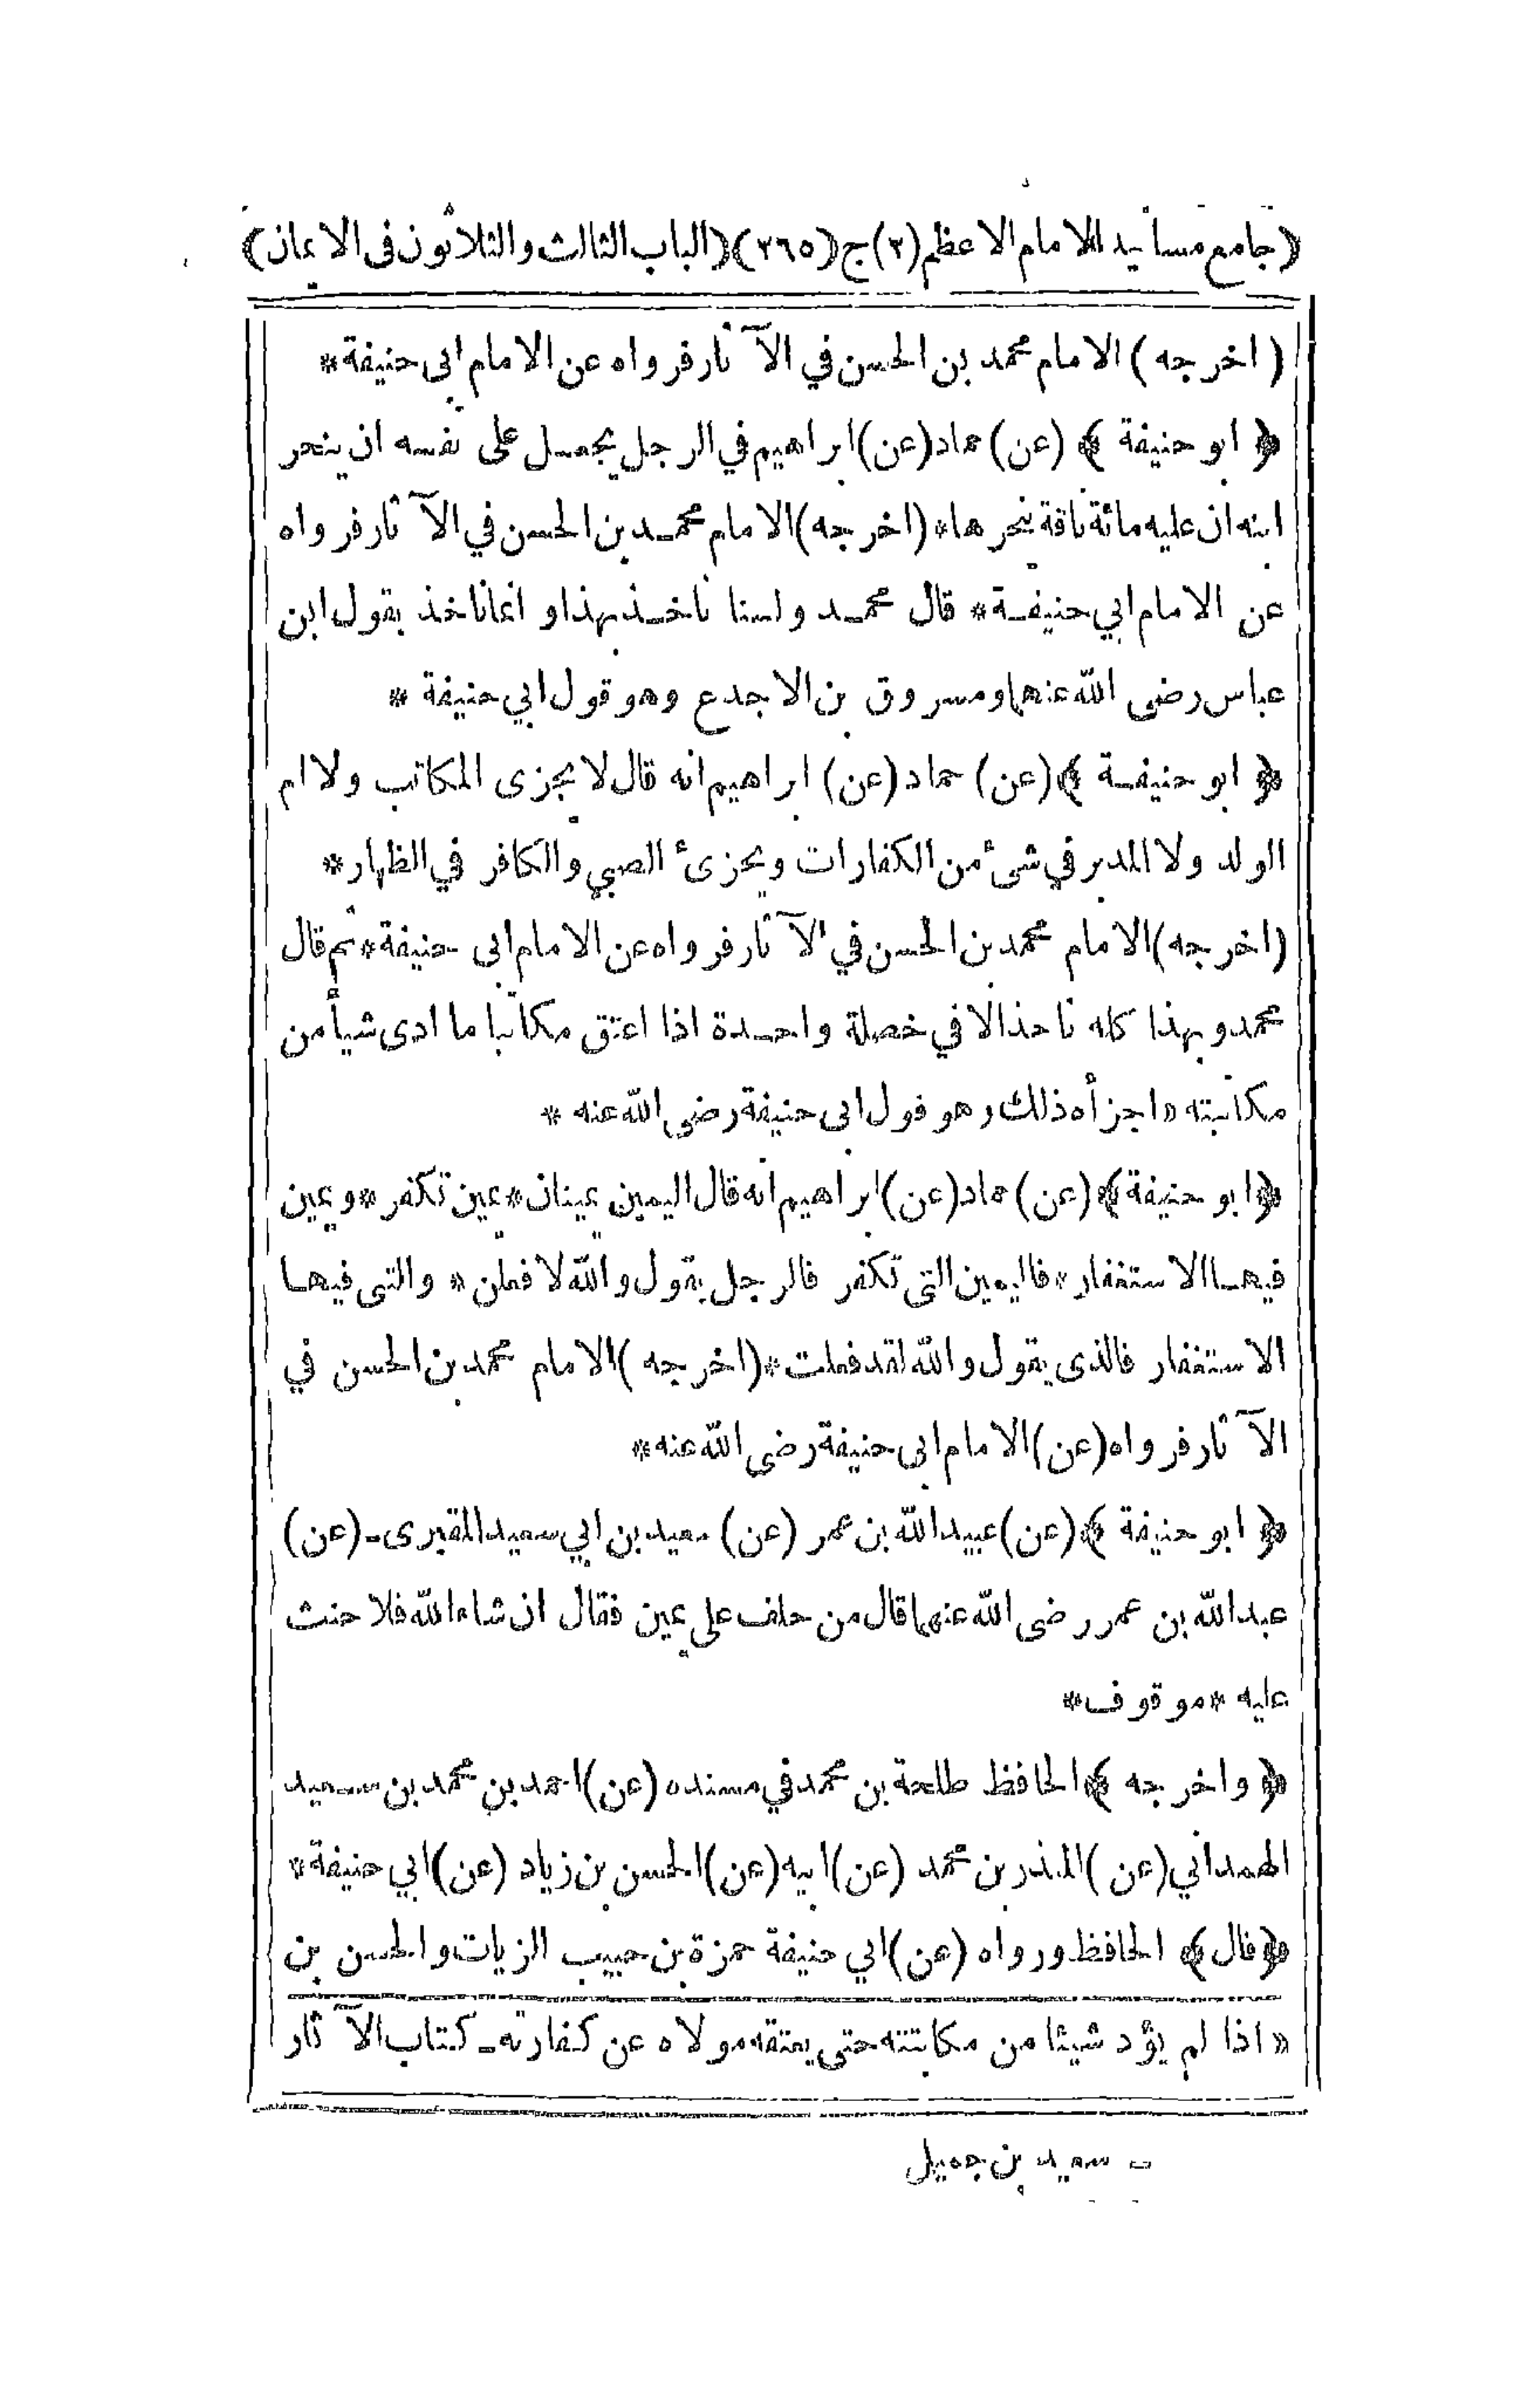 (جامع مسانيد الامام الاعظم (٢) ج (٣٦٥) (الباب الثالث والثلاثون فى الايمان)
( اخرجه ) الامام محمد بن الحسن في الآثار فرواه عن الامام ابى حنيفة *
﴿ ابو حنيفة ﴾ (عن) حماد (عن) ابراهيم في الرجل يجعل على نفسه ان ينحر
ابنه ان عليه مائة ناقة ينحرها * (اخرجه) الامام محمد بن الحسن في الآثار فرواه
عن الامام ابي حنيفة * قال محمد ولسنا ناخذ بهذا وانما ناخذ بقول ابن
عباس رضى الله عنهما ومسروق بن الاجدع وهو قول ابي حنيفة *
﴿ ابو حنيفة ﴾ (عن) حماد (عن) ابراهيم انه قال لا يجزى المكاتب ولا ام
الولد ولا المدبر في شىء من الكفارات ويجزىء الصبي والكافر في الظهار *
(اخرجه) الامام محمد بن الحسن في الآثار فرواه عن الامام ابى حنيفة * ثم قال
محمد وبهذا كله ناخذ الا في خصلة واحدة اذا اعتق مكاتبا ما ادى شيأ من
مكاتبته « اجزأه ذلك وهو قول ابى حنيفة رضى الله عنه *
﴿ ابو حنيفة ﴾ (عن) حماد (عن) ابراهيم انه قال اليمين يمينان * يمين تكفر * ويمين
فيها الاستغفار * فاليمين التى تكفر فالرجل يقول والله لافعلن * والتى فيها
الاستغفار فالذى يقول والله لقد فعلت * (اخرجه) الامام محمد بن الحسن في
الآثار فرواه (عن) الامام ابى حنيفة رضى الله عنه *
﴿ ابو حنيفة ﴾ (عن) عبيد الله بن عمر (عن) سعيد بن ابي سعيد المقبرى ـ (عن)
عبد الله بن عمر رضى الله عنهما قال من حلف على يمين فقال ان شاء الله فلا حنث
عليه * موقوف *
﴿ واخرجه ﴾ الحافظ طلحة بن محمد في مسنده (عن) احمد بن محمد بن سعيد
الهمداني (عن) المنذر بن محمد (عن) ابيه (عن) الحسن بن زياد (عن) ابي حنيفة *
﴿قال﴾ الحافظ ورواه (عن) ابي حنيفة حمزة بن حبيب الزيات والحسن بن
« اذا لم يؤد شيئا من مكاتبته حتى يعتقه مولاه عن كفارته ـ كتاب الآثار
ـ سعيد بن جميل